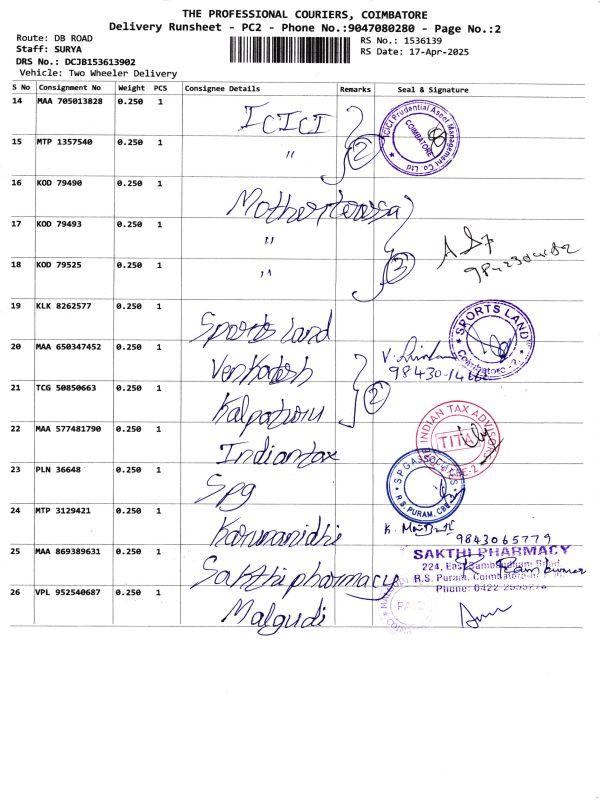 THE PROFESSIONAL COURIERS, COIMBATORE
Delivery Runsheet - PC2 - Phone No.:9047080280 - Page No.:2
Route: DB ROAD
RS No.: 1536139
Staff: SURYA
RS Date: 17-Apr-2025
DRS No.: DCJB153613902
Vehicle: Two Wheeler Delivery
S No Consignment No Weight PCS Consignee Details Remarks Seal & Signature
14 MAA 705013828 0.250 1 ICICI
ICICI Prudential Asset Management Co. Ltd
COIMBATORE
15 MTP 1357540 0.250 1 "
2
16 KOD 79490 0.250 1 Motherteresa
17 KOD 79493 0.250 1 "
18 KOD 79525 0.250 1 "
3
19 KLK 8262577 0.250 1 Sports land
SPORTS LAND
Coimbatore - 2.
20 MAA 650347452 0.250 1 Venkatesh
98430-14
21 TCG 50850663 0.250 1 Kalpatharu
2
22 MAA 577481790 0.250 1 Indiantax
INDIAN TAX ADVISORS
TITA
CBE-2
23 PLN 36648 0.250 1 Spg
SPGASSOCIATES
R.S. PURAM, CBE
24 MTP 3129421 0.250 1 Karunanidhi
9843065779
25 MAA 869389631 0.250 1 Sakthi pharmacy
SAKTHI PHARMACY
224, East Sambandham Road
R.S. Puram, Coimbatore
Phone: 0422-
26 VPL 952540687 0.250 1 Malgudi
PAID